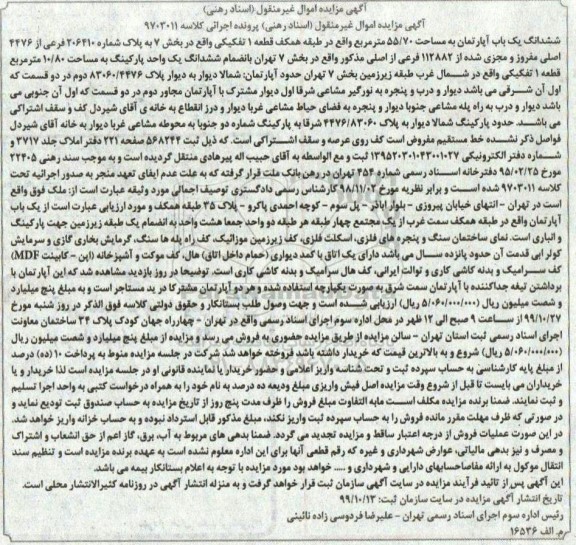 آگهی مزایده اموال غیرمنقول (اسناد رهنی)
آگهی مزایده اموال غیرمنقول (اسناد رهنی) پرونده اجرائی کلاسه ۹۷۰۳۰۱۱
ششدانگ یک باب آپارتمان به مساحت ۵۵/۷۰ مترمربع واقع در طبقه همکف قطعه ۱ تفکیکی واقع در بخش ۷ به پلاک شماره ۲۰۶۴۱۰ فرعی از ۴۴۷۶
اصلی مفروز و مجزی شده از ۱۱۲۸۸۲ فرعی از اصلی مذکور واقع در بخش ۷ تهران بانضمام ششدانگ یک واحد پارکینگ به مساحت ۱۰/۸۰ مترمربع
قطعه ۱ تفکیکی واقع در شمال غرب طبقه زیرزمین بخش ۷ تهران حدود آپارتمان: شمالا دیوار به دیوار پلاک ۸۳۰۶۰/۴۴۷۶ دوم در دو قسمت که
اول آن شرقی می باشد دیوار و درب و پنجره به نورگیر مشاعی شرقا اول دیوار مشترک با آپارتمان مجاور دوم در دو قسمت که اول آن جنوبی می
باشد دیوار و درب به راه پله مشاعی جنوبا دیوار و پنجره به فضای حیاط مشاعی غربا دیوار و درز انقطاع به خانه ی آقای شیردل کف و سقف اشتراکی
می باشد. حدود پارکینگ شمالا دیوار به پلاک ۴۴۷۶/۸۳۰۶۰ شرقا به پارکینگ شماره دو جنوبا به محوطه مشاعی غربا دیوار به خانه آقای شیردل
فواصل ذکر نشده خط مستقیم مفروض است کف روی عرصه و سقف اشتراکی است. که ذیل ثبت ۵۶۸۲۴۴ صفحه ۲۲۱ دفتر املاک جلد ۳۷۱۷ و
شماره دفتر الکترونیکی ۱۳۹۵۲۰۳۰۱۰۴۳۰۰۱۰۲۷ ثبت و مع الواسطه به آقای حبیب اله پیرهادی منتقل گردیده است و به موجب سند رهنی ۲۲۴۰۵
مورخ ۹۵/۰۲/۲۵ دفترخانه اسناد رسمی شماره ۴۵۴ تهران در رهن بانک ملت قرار گرفته که به علت عدم ایفای تعهد منجر به صدور اجرائیه تحت
کلاسه ۹۷۰۳۰۱۱ شده است و برابر نظریه مورخ ۹۸/۱۱/۰۲ کارشناس رسمی دادگستری توصیف اجمالی مورد وثیقه عبارت است از: ملک فوق واقع
است در تهران - انتهای خیابان پیروزی - بلوار اباذر - پل سوم - کوچه احمدی پاکرو - پلاک ۳۵ طبقه همکف و مورد ارزیابی عبارت است از یک باب
آپارتمان واقع در طبقه همکف سمت غرب از یک مجتمع چهار طبقه هر طبقه دو واحد جمعا هشت واحد به انضمام یک طبقه زیرزمین جهت پارکینگ
و انباری است. نمای ساختمان سنگ و پنجره های فلزی، اسکلت فلزی، کف زیرزمین موزائیک، کف راه پله ها سنگ، گرمایش بخاری گازی و سرمایش
کولر آبی قدمت آن حدود پانزده سال می باشد دارای یک اتاق با کمد دیواری (حمام داخل اتاق) هال، کف موکت و آشپزخانه (اپن - کابینت MDF)
کف سرامیک و بدنه کاشی کاری و توالت ایرانی، کف هال سرامیک و بدنه کاشی کاری است. توضیحا در روز بازدید مشاهده شد که این آپارتمان با
برداشتن تیغه جداکننده با آپارتمان سمت شرق به صورت یکپارچه استفاده شده و هر دو آپارتمان مشترکا در ید مستاجر است و به مبلغ پنج میلیارد
و شصت میلیون ریال (۵/۰۶۰/۰۰۰/۰۰۰ ریال) ارزیابی شده است و جهت وصول طلب بستانکار و حقوق دولتی کلاسه فوق الذکر در روز شنبه مورخ
۹۹/۱۰/۲۷ از ساعت ۹ صبح الی ۱۲ ظهر در محل اداره سوم اجرای اسناد رسمی واقع در تهران - چهارراه جهان کودک پلاک ۳۴ ساختمان معاونت
اجرای اسناد رسمی ثبت استان تهران - سالن مزایده از طریق مزایده حضوری به فروش می رسد و مزایده از مبلغ پنج میلیارد و شصت میلیون ریال
(۵/۰۶۰/۰۰۰/۰۰۰ ریال) شروع و به بالاترین قیمت که خریدار داشته باشد فروخته خواهد شد شرکت در جلسه مزایده منوط به پرداخت ۱۰ (ده) درصد
از مبلغ پایه کارشناسی به حساب سپرده ثبت و تحت شناسه واریز اعلامی و حضور خریدار یا نماینده قانونی او در جلسه مزایده است لذا خریدار و یا
خریداران می بایست تا قبل از شروع وقت مزایده اصل فیش واریزی مبلغ ودیعه ده درصد به نام خود را به همراه درخواست کتبی به واحد اجرا تسلیم
و ثبت نمایند. ضمنا برنده مزایده مکلف است مابه التفاوت مبلغ فروش را ظرف مدت پنج روز از تاریخ مزایده به حساب صندوق ثبت تودیع نماید و
در صورتی که ظرف مهلت مقرر مانده فروش را به حساب سپرده ثبت واریز نکند، مبلغ مذکور قابل استرداد نبوده و به حساب خزانه واریز خواهد شد.
در این صورت عملیات فروش از درجه اعتبار ساقط و مزایده تجدید می گردد. ضمنا بدهی های مربوط به آب، برق، گاز اعم از حق انشعاب و اشتراک
و مصرف و نیز بدهی مالیاتی، عوارض شهرداری و غیره که رقم قطعی آنها برای این اداره معلوم نشده است به عهده برنده مزایده است و تنظیم سند
انتقال موکول به ارائه مفاصاحسابهای دارایی و شهرداری و ..... خواهد بود مورد مزایده با توجه به اعلام بستانکار بیمه می باشد.
این آگهی پس از تائید فرآیند مزایده در سایت آگهی سازمان ثبت قرار خواهد گرفت و به منزله انتشار آگهی در روزنامه کثیرالانتشار محلی است.
تاریخ انتشار آگهی مزایده در سایت سازمان ثبت: ۹۹/۱۰/۱۳
رئیس اداره سوم اجرای اسناد رسمی تهران - علیرضا فردوسی زاده نائینی
م. الف ۱۶۵۳۶